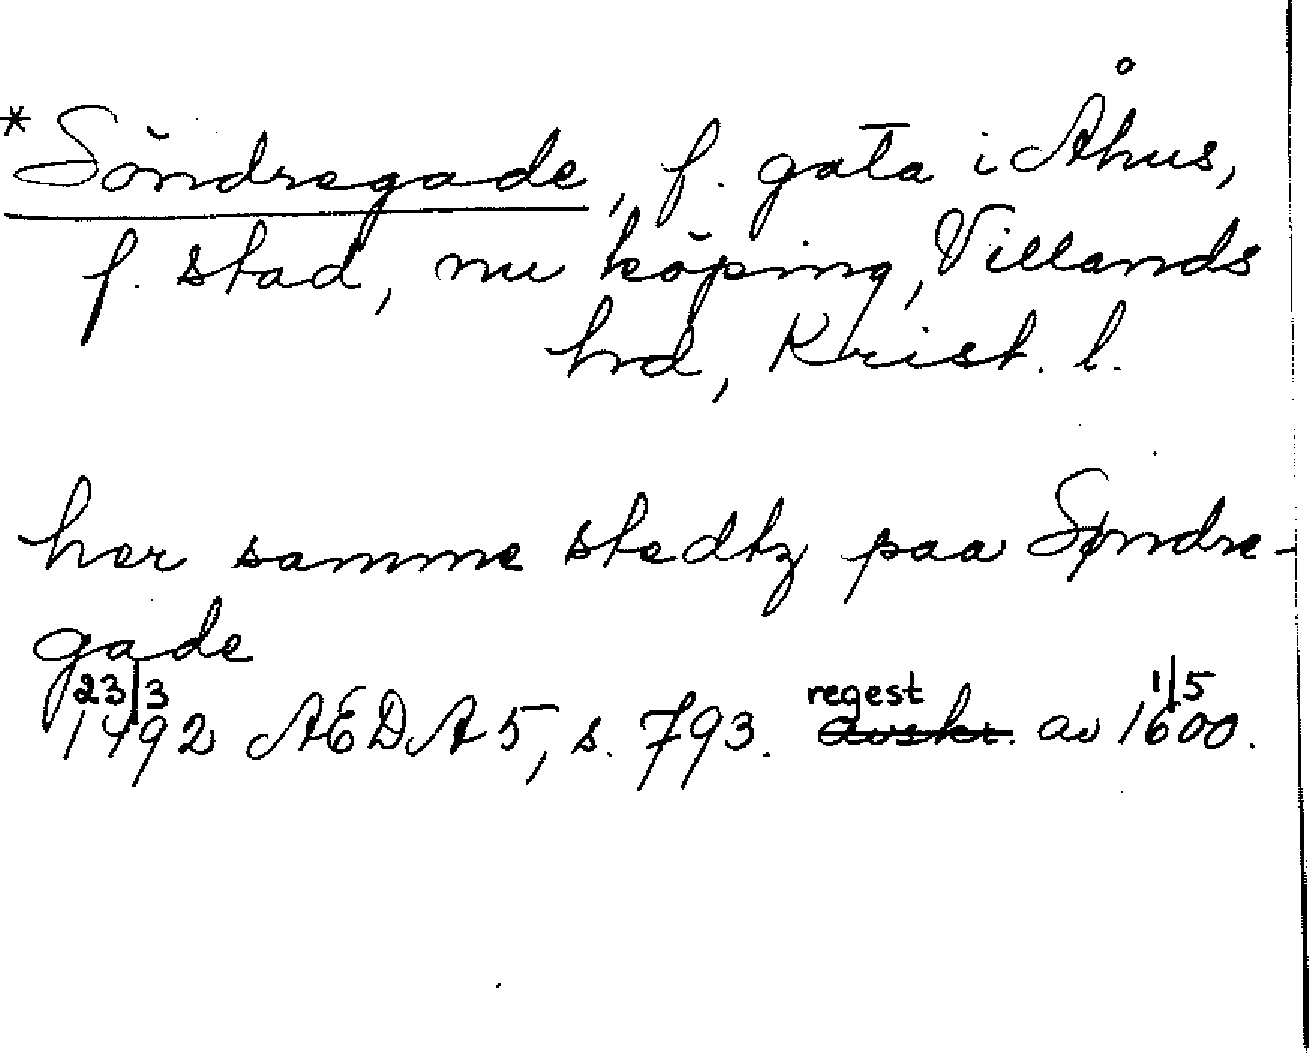 *Söndregade, f. gata i Åhus,
f. stad, nu köping, Villands
hrd, Krist. l.
her samme stedtz paa Søndre-
gade
23/3 1492 AEDA 5, s. 793. regest avskr. av 1/5 1600.